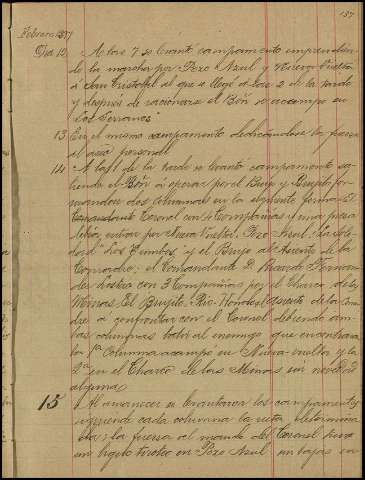 137
Febrero 1897
Dia 12 A las 7 se levantó campamento emprendien-
do la marcha por Pozo Azul y Nueva Vuelta
a San Cristobal al que se llegó á las 2 de la tarde
y después de racionarse el Bón se acampó en
"Los Serranos"
13 En el mismo campamento dedicandose la fuerza
al aseo personal
14 A la 1 de la tarde se levantó campamento sa-
liendo el Bón á operar por el Brujo y Brujito for-
mandose dos columnas en la siguiente forma: El
Comandante Coronel con 4 Compañias y una pieza
Nueva Vuelta, Pozo Azul, La Sole-
dad "Los Zumbos" y el Brujo al Asiento de la
Comadre; el Comandante D. Ricardo Fernan-
dez con 3 Compañias por el Charco de las
Minas, El Brujito, Rio Hondo, al Asiento de la Coma-
dre a confrontar con el Coronel debiendo am-
bas columnas batir al enemigo que encontraran
la 1ª Columna acampó en Nueva-vuelta y la
2ª en el Charco de las Minas sin novedad
alguna
15 Al amanecer se levantaron los campamentos
siguiendo cada columna la ruta determina-
da; la fuerza al mando del Coronel tuvo
un ligero tiroteo en Pozo Azul sin bajas en